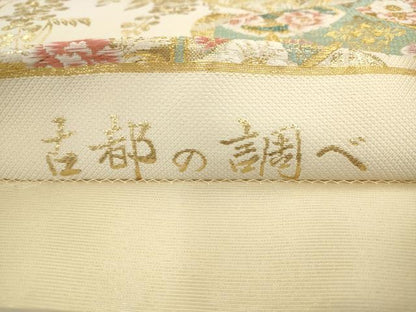 古都の調べ